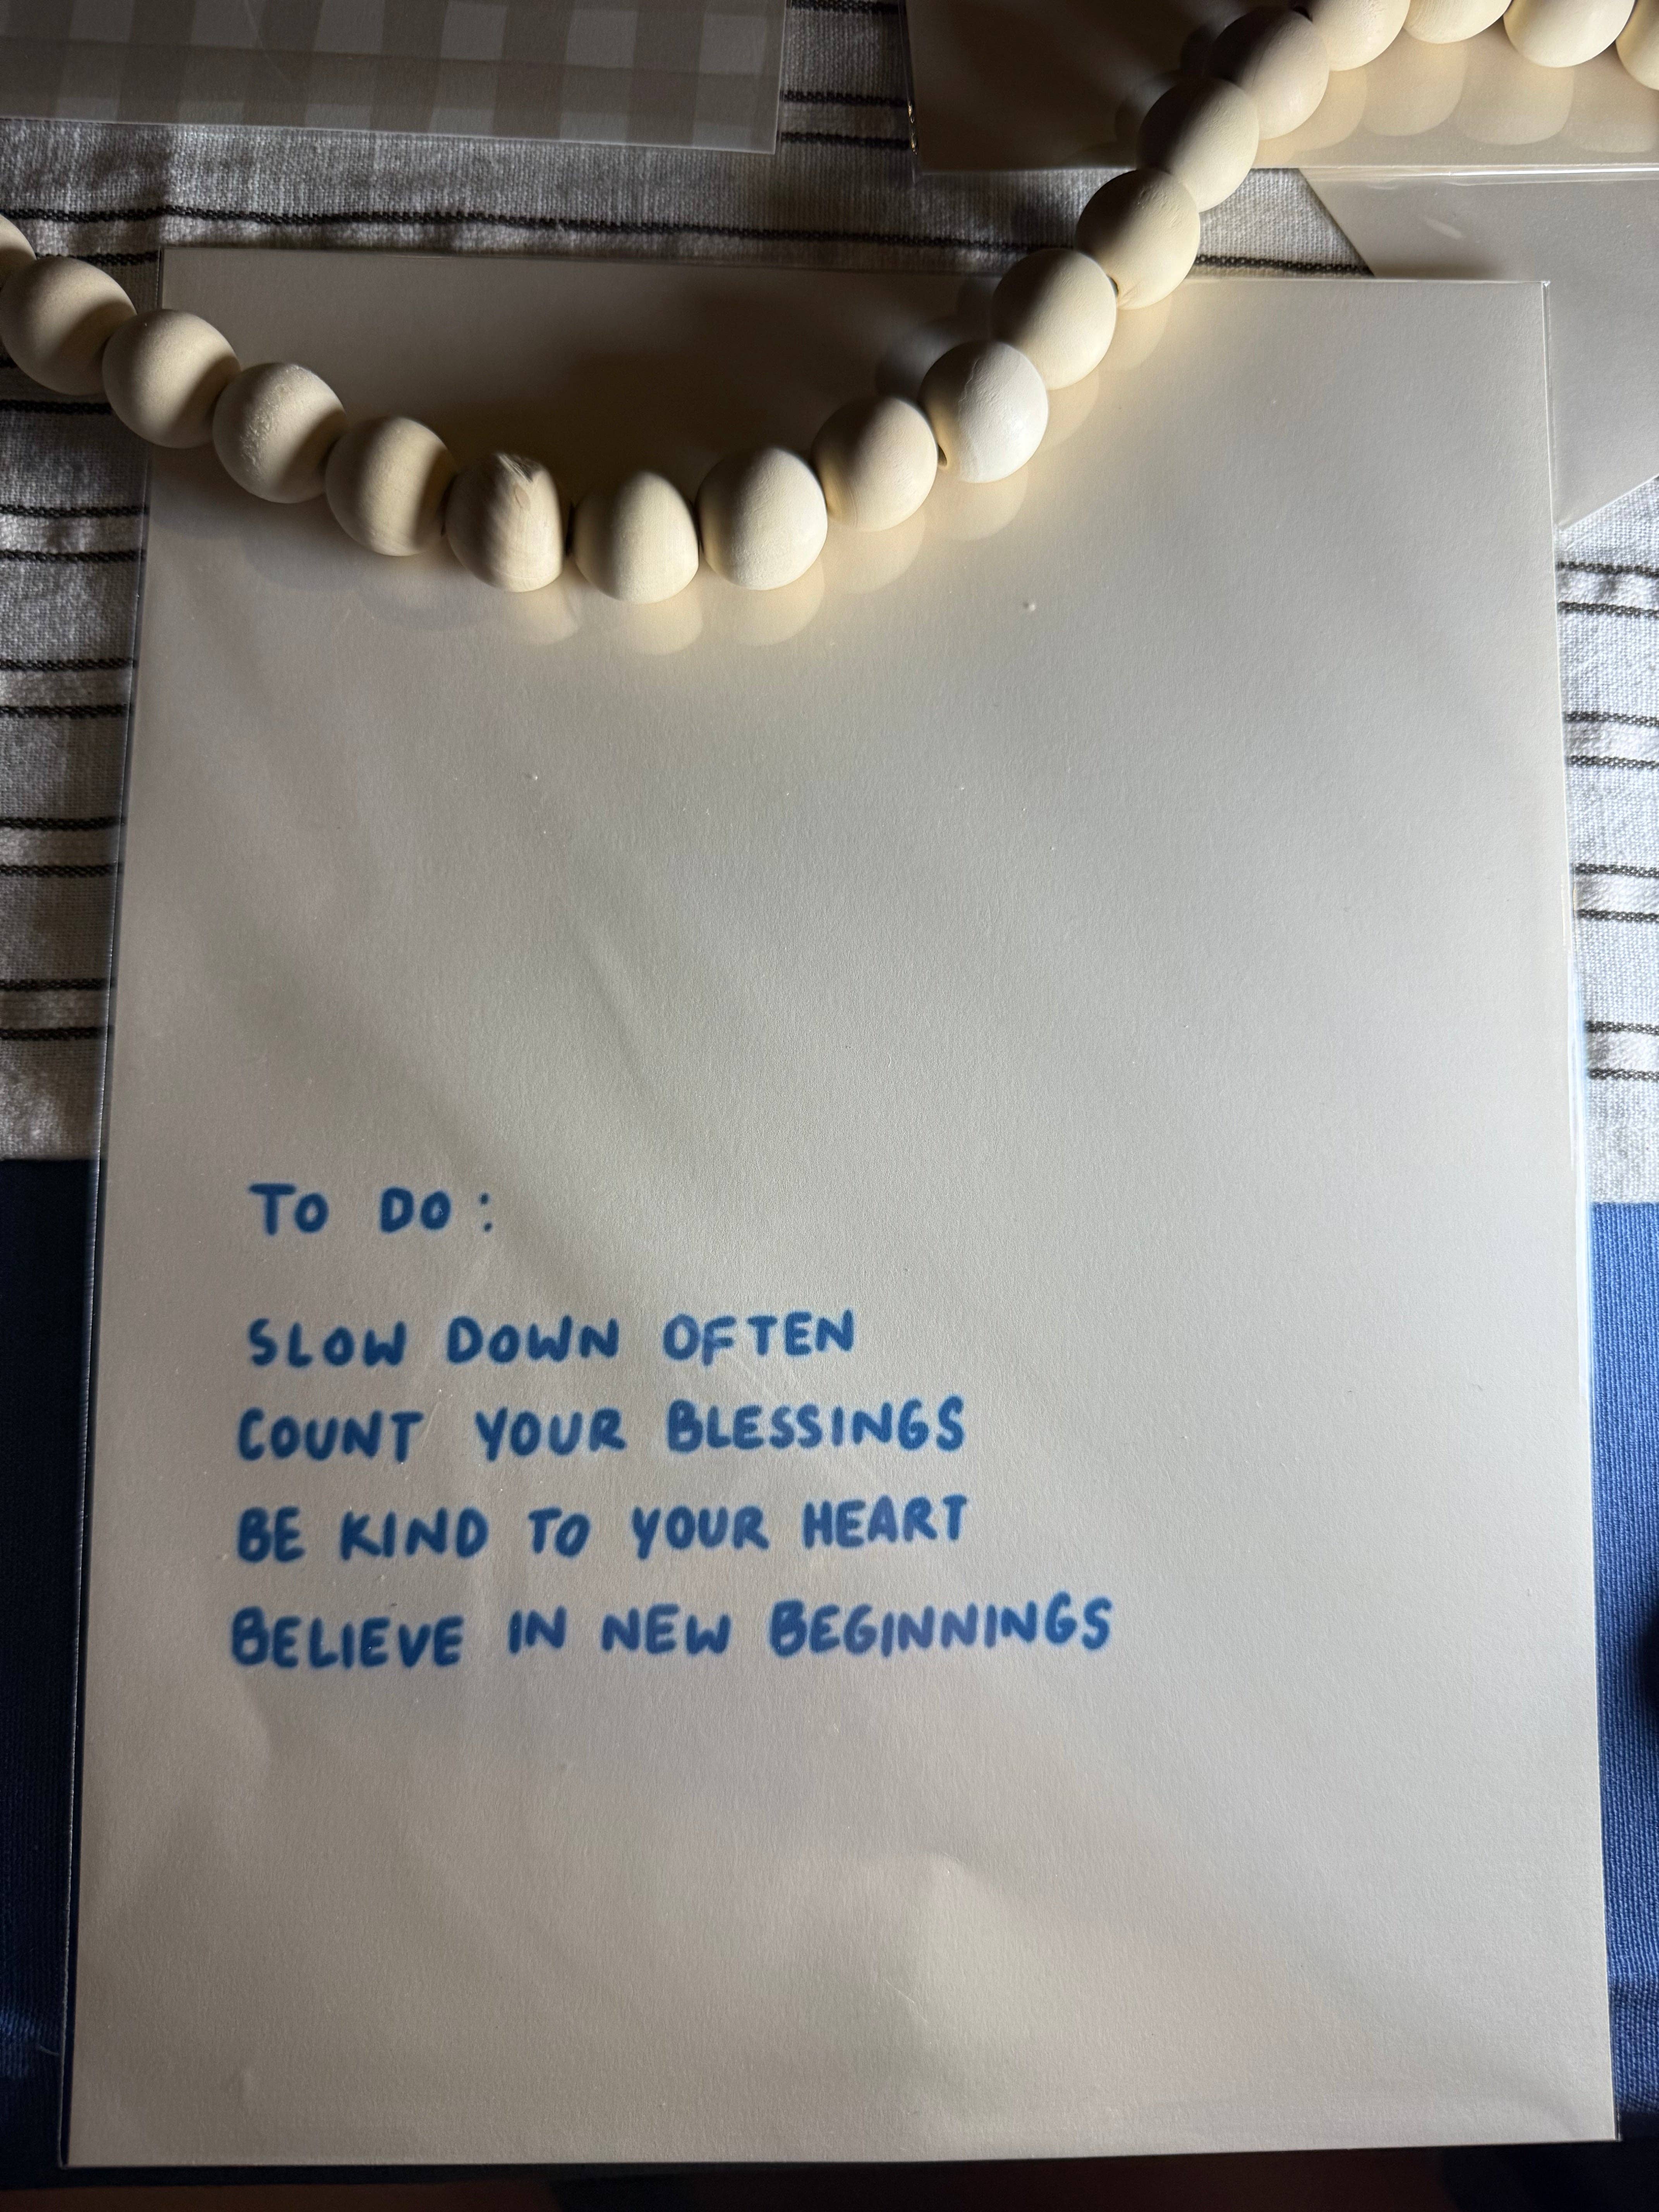 TO DO:
SLOW DOWN OFTEN
COUNT YOUR BLESSINGS
BE KIND TO YOUR HEART
BELIEVE IN NEW BEGINNINGS